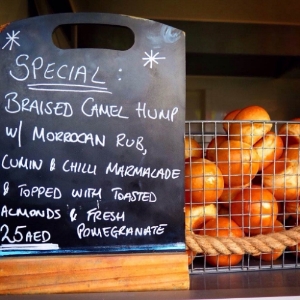 SPECIAL :
BRAISED CAMEL HUMP
W/ MORROCAN RUB,
CUMIN & CHILLI MARMALADE
& TOPPED WITH TOASTED
ALMONDS & FRESH
25AED POMEGRANATE